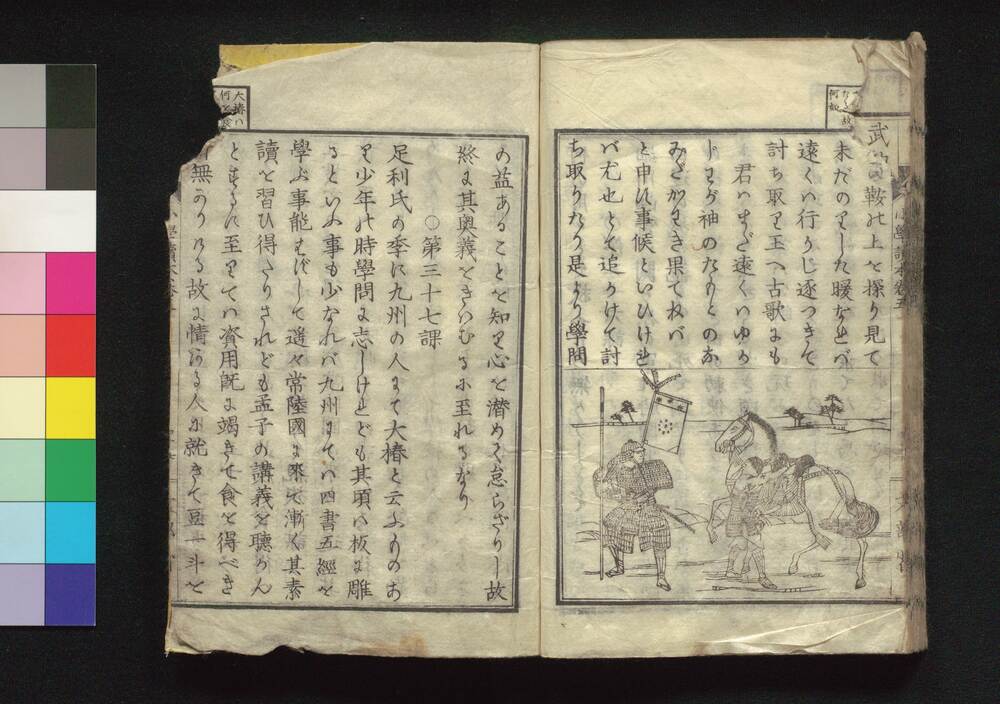 武蔵鞍の上を探り見て
未だのりした暖なれバ
遠くハ行かじ逐つきて
討ち取り玉へ古歌にも
君ハまだ遠くハゆか
じわが袖のたもとのな
みだかわき果てねバ
と申す事候といひけれ
バ尤也とて追かけて討
ち取りたり是より學問
の益あることを知り心を潜めて怠らざりし故
終に其奥義をきハむるに至れるなり
○第三十七課
足利氏の季に九州の人にて大椿と云ふものあ
り少年の時學問に志しけれども其頃ハ板に雕
るといふ事も少なれバ九州にてハ四書五經を
學ぶ事能ハずして遥々常陸國に來て漸く其素
讀を習ひ得たりされども孟子の講義を聽かん
とするに至りてハ資用既に竭きて食を得べき
無かりける故に情ある人に就きて豆一斗を
大椿ハ
何
故
何如